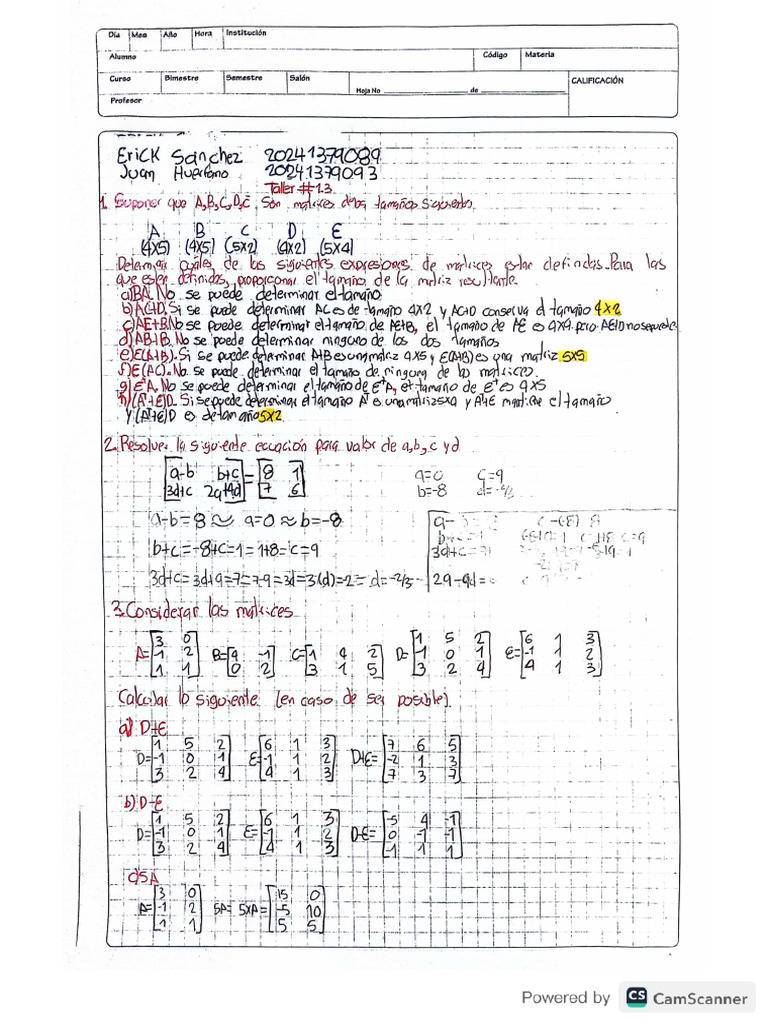 Día Mes Año Hora Institución
Alumno Código Materia
Curso Bimestre Semestre Salón Hoja No de CALIFICACIÓN
Profesor
Erick Sanchez 20241379089
Juan Huerfano 20241379093
Taller #1.3
1. Suponer que A,B,C,D,E. Son matrices de los tamaños siguientes
A B C D E
(4x5) (4x5) (5x2) (4x2) (5x4)
Determinar cuáles de las siguientes expresiones de matrices estan definidas. Para las
que esten definidas, proporcionar el tamaño de la matriz resultante.
a) BA. No se puede determinar el tamaño
b) AC+D. Si se puede determinar AC es de tamaño 4x2 y AC+D conserva el tamaño 4x2
c) AE+B. No se puede determinar el tamaño de AE+B, el tamaño de AE es 4x4 pero no se puede
d) AB+B. No se puede determinar ninguno de los dos tamaños
e) E(A+B). Si se puede determinar A+B es una matriz 4x5 y E(A+B) es una matriz 5x5
f) E(AC). No se puede determinar el tamaño de ninguna de las matrices.
g) EᵀA. No se puede determinar el tamaño de EᵀA, el tamaño de Eᵀ es 4x5
h) (Aᵀ+E)D. Si se puede determinar el tamaño Aᵀ es una matriz 5x4 y Aᵀ+E mantiene el tamaño
y (Aᵀ+E)D es de tamaño 5x2
2. Resolver la siguiente ecuación para valor de a,b,c y d
[a-b b+c] = [8 1] a=0 c=9
[3d+c 2a+4d] [7 6] b=-8 d=-2/3
a-b=8 ≈ a=0 ≈ b=-8
b+c=-8+c=1=1+8=c=9
3d+c=3d+9=7=7-9=3d=3(d)=-2=d=-2/3
3. Considerar las matrices
A=[3 0 B=[4 -1 C=[1 4 2 D=[1 5 2 E=[6 1 3
-1 2 0 2] 3 1 5] -1 0 1 -1 1 2
1 1] 3 2 4] 4 1 3]
Calcular lo siguiente (en caso de ser posible).
a) D+E
D=[1 5 2 E=[6 1 3 D+E=[7 6 5
-1 0 1 -1 1 2 -2 1 3
3 2 4] 4 1 3] 7 3 7]
b) D-E
D=[1 5 2 E=[6 1 3 D-E=[-5 4 -1
-1 0 1 -1 1 2 0 -1 -1
3 2 4] 4 1 3] -1 1 1]
c) 5A
A=[3 0 5A= 5xA=[15 0
-1 2 -5 10
1 1] 5 5]
Powered by CS CamScanner